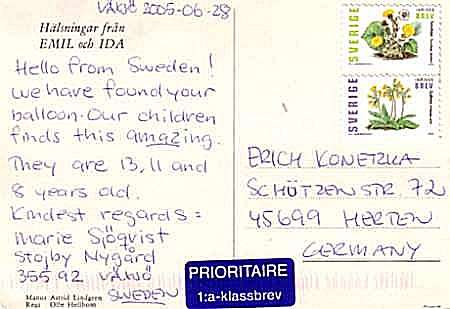 VÄXJÖ 2005-06-28
Hälsningar från
EMIL och IDA
Hello from Sweden!
we have found your
balloon. Our children
finds this amazing.
They are 13, 11 and
8 years old.
Kindest regards:
Marie Sjöqvist
Stojby Nygård
355 92 VÄXJÖ
SWEDEN
Manus Astrid Lindgren
Regi Olle Hellbom
PRIORITAIRE
1:a-klassbrev
SVERIGE
BREV
SVERIGE
BREV
ERICH KONETZKA
SCHÜTZENSTR. 72
45699 HERTEN
GERMANY